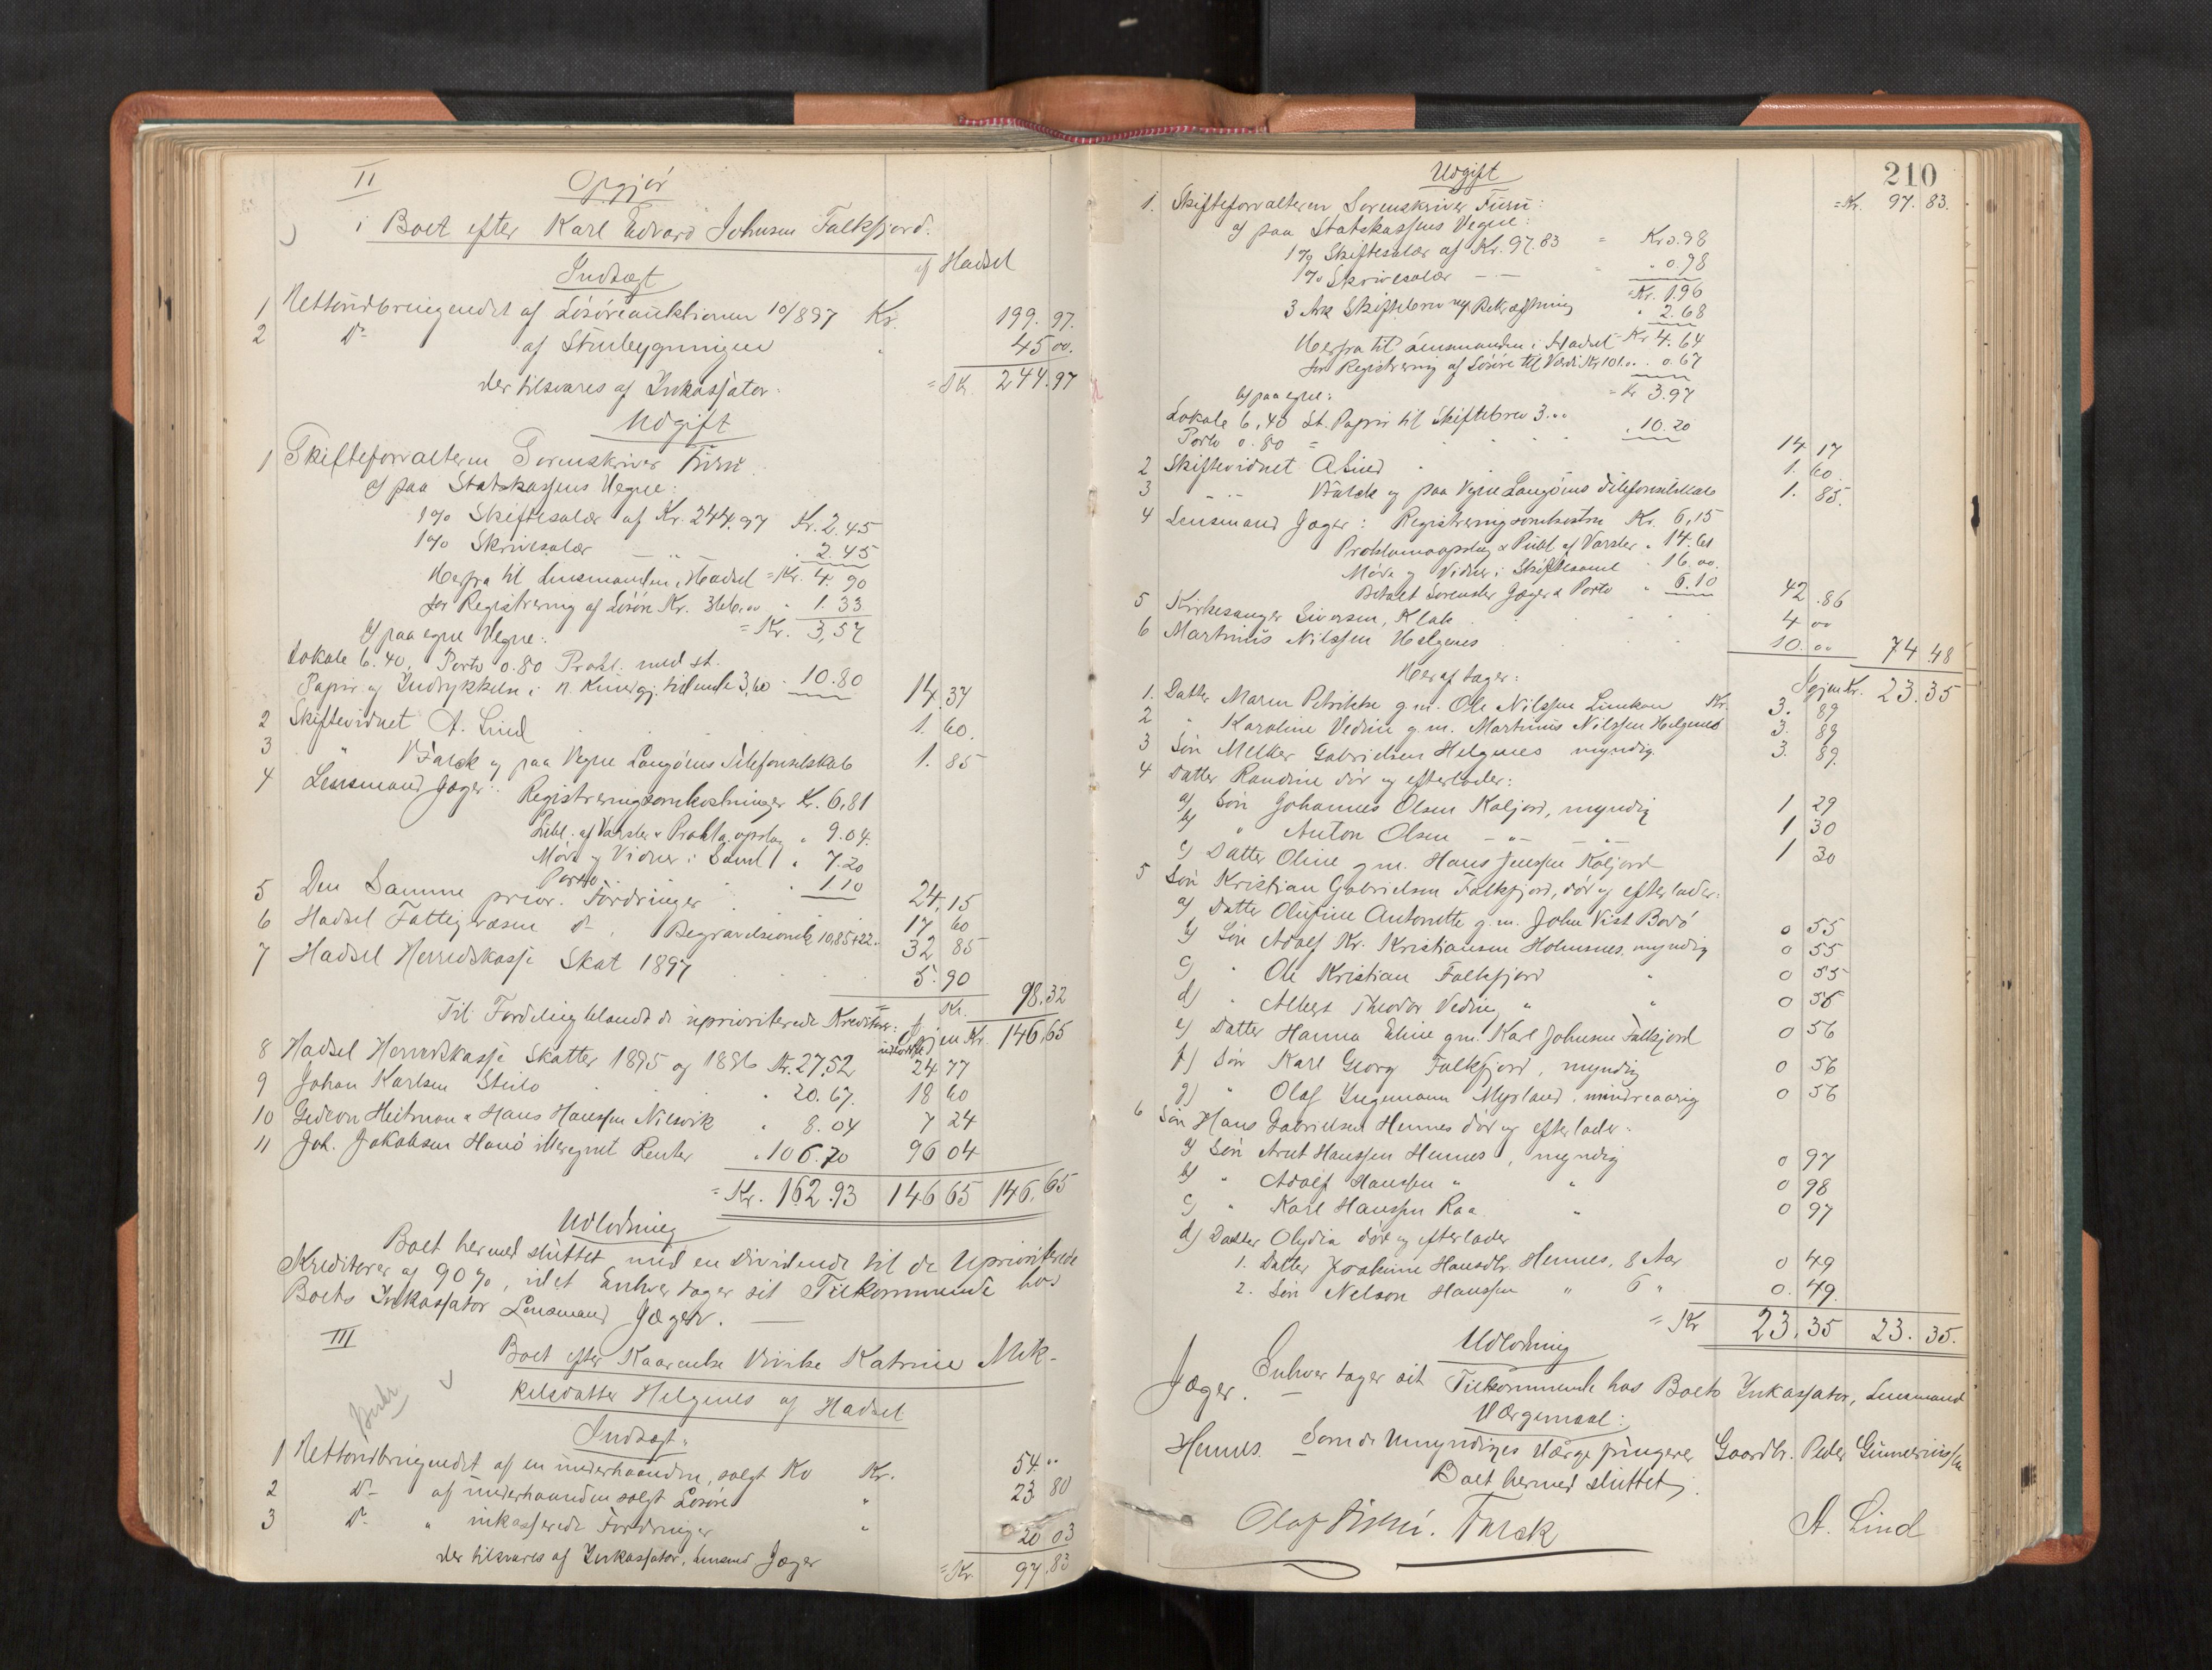 II
Opgjør
i Boet efter Karl Edvard Johnsen Falkfjord.
af Hadsel
Indtægt
1 Nettoudbringendet af Løsøreauktionen 10/897 Kr. 199.97.
2 Do af Stuebygningen " 45 00.
der tilsvares af Inkassator = Kr. 244.97
Udgift
1 Skifteforvalteren Sorenskriver Furu
a) paa Statskassens Vegne:
1% Skiftesalær af Kr. 244.97 Kr. 2.45
1% Skrivesalær — " — " 2.45
Herfra til Lensmanden i Hadsel = Kr. 4.90
for Registrering af Løsøre Kr. 366,00 " 1.33
b) paa egne Vegne: = Kr. 3,57
Lokale 6.40, Porto 0.80 Prokl. med st.
Papir og Indrykkelse i n. Kundgj. tidende 3,60 " 10.80 14.37
2 Skiftevidnet A. Lind 1. 60.
3 " Falck og paa Vegne Langøens Telefonselskab 1. 85
4 Lensmand Jæger: Registreringsomkostninger Kr. 6,81
Publ. af Varsler & Prokla. opslag " 9.04.
Møde og Vidner i Saml " 7.20
Porto " 1.10 24,15
5 Den Samme prior. Fordringer 17 60
6 Hadsel Fattigvæsen do, Begravelsesomk 10,85+22.. 32 85
7 Hadsel Herredskasse Skat 1897 5.90
= Kr. 98.32
Til Fordeling blandt de uprioriterede Kreditorer: Igjen Kr. 146,65
8 Hadsel Herredskasse Skatter 1895 og 1896 Kr. 27,52 24 77
9 Johan Karlsen Steilo " 20.67. 18 60
10 Gedeon Heitman & Hans Hanssen Nilsvik " 8.04 7 24
11 Joh. Jakobsen Hanø iberegnet Renter " 106.70 96 04
= Kr. 162.93 146 65 146,65
Udlodning
Boet hermed sluttet med en Dividende til de Uprioriterede
Kreditorer af 90%, idet Enhver tager sit Tilkommende hos
Boets Inkassator Lensmand Jæger. —
III
Boet efter Kaarenke Vivike Katrine Mek-
kelsdatter Helgenes af Hadsel
Indtægt
1 Nettoudbringendet af en underhaanden solgt Ko Kr. 54 "
2 Do af underhaanden solgt Løsøre " 23 80
3 Do " inkasserede Fordringer " 20 03
der tilsvares af Inkassator, Lensmd Jæger = Kr. 97.83
210
Udgift
= Kr. 97.83.
1. Skifteforvalteren Sorenskriver Furu:
a) paa Statskassens Vegne:
1% Skiftesalær af Kr. 97.83 = Kr 0.98
1% Skrivesalær — — " 0.98
= Kr. 1.96
3 Ark Skiftebrev og Bekræftning " 2.68
Herfra til Lensmanden i Hadsel = Kr 4.64
for Registrering af Løsøre til Værdi Kr 101.00 " 0.67
b) paa egne: = Kr 3.97
Lokale 6,40 St. Papir til Skiftebrev 3.00
Porto 0.80 = " 10.20 14 17
2 Skiftevidnet A Lind 1. 60.
3 — " — Falck og paa Vegne Langøens Telefonselskab 1. 85.
4 Lensmand Jæger: Registreringsomkostn Kr. 6,15
Proklamaopslag & Publ af Varsler " 14.61
Møde og Vidner i Skiftesaml " 16.00.
Betalt Sorenskr Jæger & Porto " 6.10 42.86
5 Kirkesanger Siversen, Klak 4 00
6 Martinus Nilssen Helgenes 10.00 74.48
Igjen Kr. 23.35
Heraf tager:
1. Datter Maren Petrikke g.m. Ole Nilssen Lunkan Kr. 3. 89
2 " Karoline Vedine g.m. Martinus Nilssen Helgenes 3. 89
3 Søn Melker Gabrielsen Helgenes myndig 3. 89.
4 Datter Randine død og efterlader:
a) Søn Johannes Olsen Kaljord, myndig 1 29
b) " Anton Olsen — " — " — 1 30
c) Datter Oline g.m. Hans Jenssen Kaljord 1 30
5 Søn Kristian Gabrielsen Falkfjord, død og efterlader:
a) Datter Olufine Antonette g.m. John Vist Bodø 0 55
b) Søn Adolf Kr. Kristiansen Holmsnes, myndig 0 55
c) " Ole Kristian Falkfjord " 0 55
d) " Albert Theodor Vedine " " 0 56
e) Datter Hanna Eline gm. Karl Johnsen Falkfjord 0 56
f) Søn Karl Georg Falkfjord, myndig 0 56
g) " Olaf Ingemann Myrland, mindreaarig 0 56
6 Søn Hans Gabrielsen Hennes død og efterlader:
a) Søn Arnt Hanssen Hennes, myndig 0 97
b) " Adolf Hanssen " " 0 98
c) " Karl Hanssen Raa " 0 97
d) Datter Olydia død og efterlader
1. Datter Joakime Hansdtr. Hennes, 8 Aar 0 49
2. Søn Nelson Hanssen " 6 " 0. 49.
= Kr 23.35 23.35.
Udlodning
Enhver tager sit Tilkommende hos Boets Inkassator, Lensmand
Jæger.
Værgemaal:
Som de Umyndiges Værge fungerer Gaardbr. Peder Gunneriussen
Hennes.
Boet hermed sluttet.
Olaf Furu. Falck A. Lind